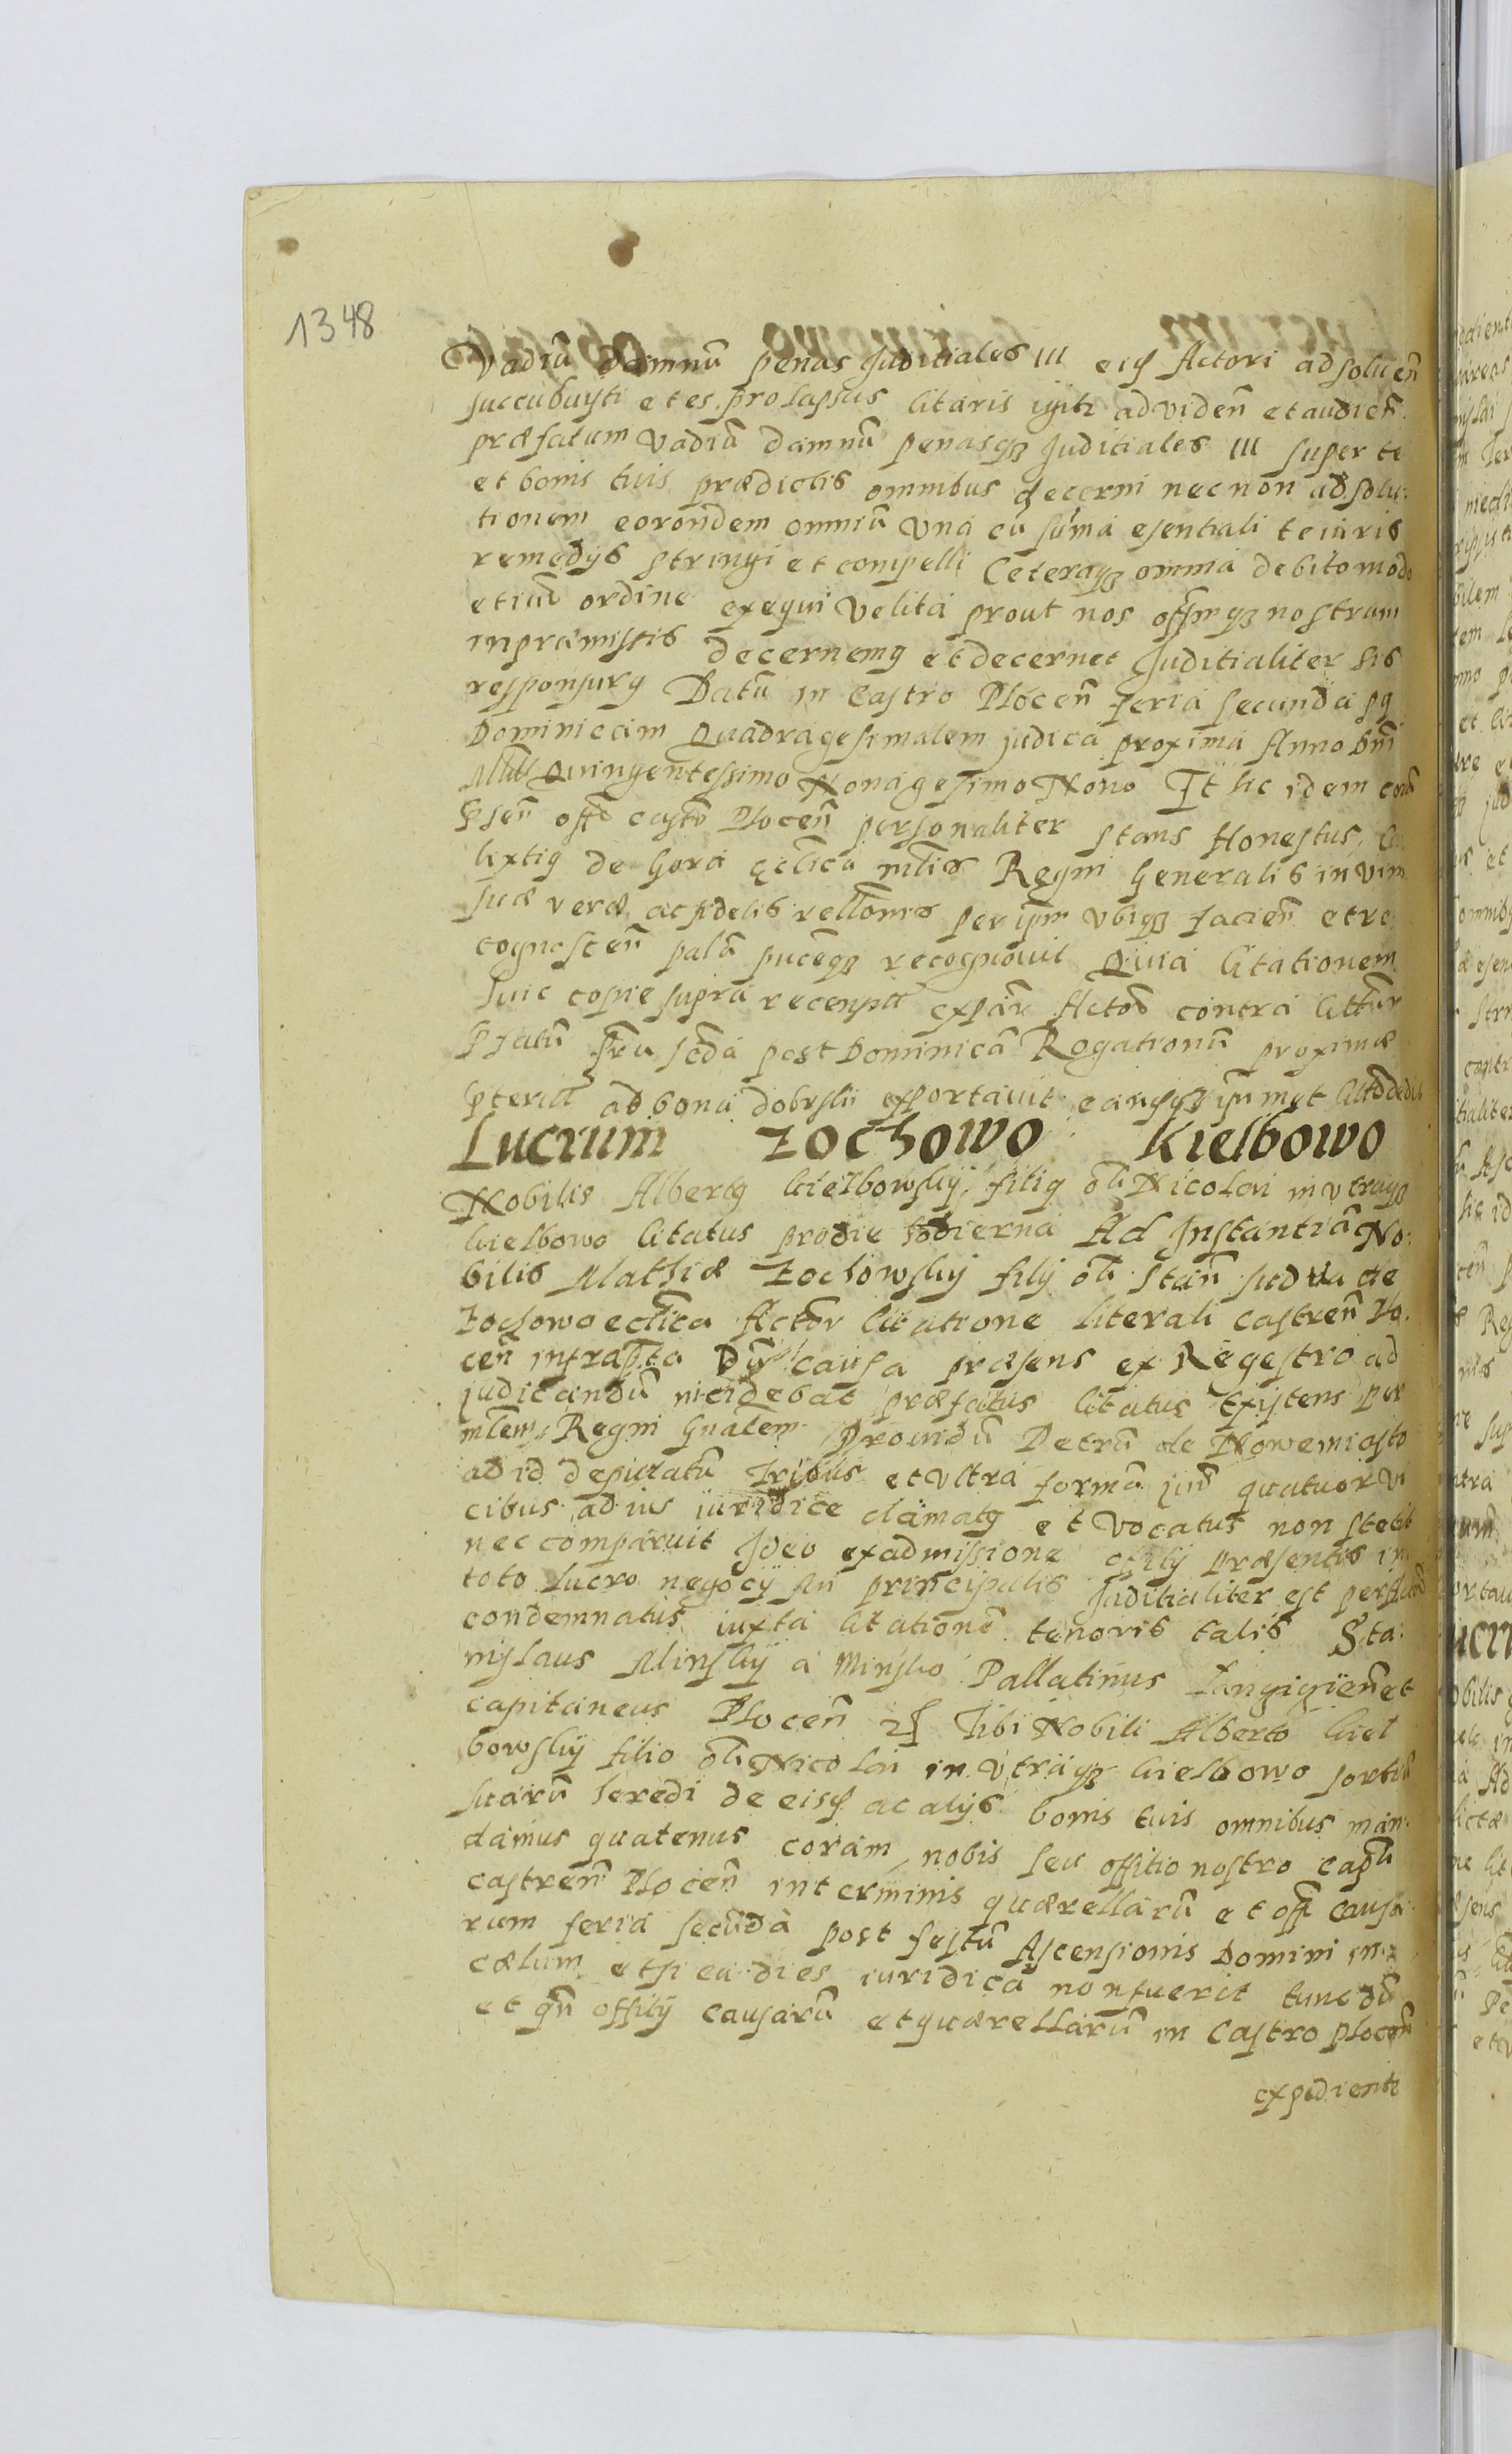 1348
Vadiũ damnũ penas Juditiales III eisd Actori ad soluen̄
succubuisti et es prolapsus Citaris igitr ad viden̄ et audien̄
præfatum vadiũ damnũ penasqȝ Juditiales III super te
et bonis tuis prædictis omnibus decerni necnon ad solu:
tionem eorondem omniũ una cũ sum̄a esentiali te iuris
remedijs stringi et compelli Ceteraqȝ omnia debito modo
et iuris ordine exequi velita prout nos offmqȝ nostrum
in præmissis decernemq et decernet Juditialiter sis
responsurq Datũ in Castro Plocen̄ feria secunda pq
Dominicam Quadragesimalem judica proxima Anno Dn̄i
Mill Quingentessimo Nonagesimo Nono Et hic idem corã
Psen̄ offo castr Plocen̄ personaliter stans Honestus
lixtiq de Gora eclica mlis Regni Generalis in vim
suæ veræ ac fidelis rellonis per ipm ubiqȝ facien̄ et re
cognoscen̄ palã puceqȝ recognouit Quia Citationem
huic copie supra recensitt ex par Actor contra Cittum
Pfatũ Fria scda post Dominicã Rogationũ proximæ
pteritt ad bona dobrskii exportauit eamqȝ
Lucrum Zochowo Kielbowo
Nobilis Albertq Kielbowskij filiq oli Nicolai in utraqȝ
Kielbowo Citatus pro die hodierna Ad Instantiã No:
bilis Mathiæ Zochowskij filij oli Stan̄ Sudwa de
Zochowo ecclica Actor Citatione literali castren̄ Plo:
cen̄ infrapta Dũ causa præsens ex Regestro ad
judicandũ incidebat præfatus Citatus Existens per
mlem Regni Gnalem Prouidũ Petrũ de Nowemiasto
ad id deputatũ Tribus et ultra formã jur quatuor vi
cibus ad ius iuridice clamatq et vocatus non stetit
nec comparuit Ideo ex admissione offitij præsentis in
toto Lucro negocij sui principalis Juditialiter est
condemnatus iuxta Citationẽ tenoris talis Sta:
nislaus Minskij a Minsko Pallatinus Langigien̄ et
capitaneus Plocen̄ Tibi Nobili Alberto Kiel
bowskij filio oli Nicolai in utraqȝ Kielbowo sortiũ
suarũ heredi de eisd ac alijs bonis tuis omnibus man:
damus quatenus coram nobis seu offitio nostro capli
castren̄ Plocen̄ in terminis quærellarũ et off causa:
rum feria secũda post festũ Ascensionis Domini in
cœlum etsi ea dies iuridica non fuerit tunc dũ
et qn̄ offitij causarũ et quærellarũ in Castro Plocen̄
expedientr